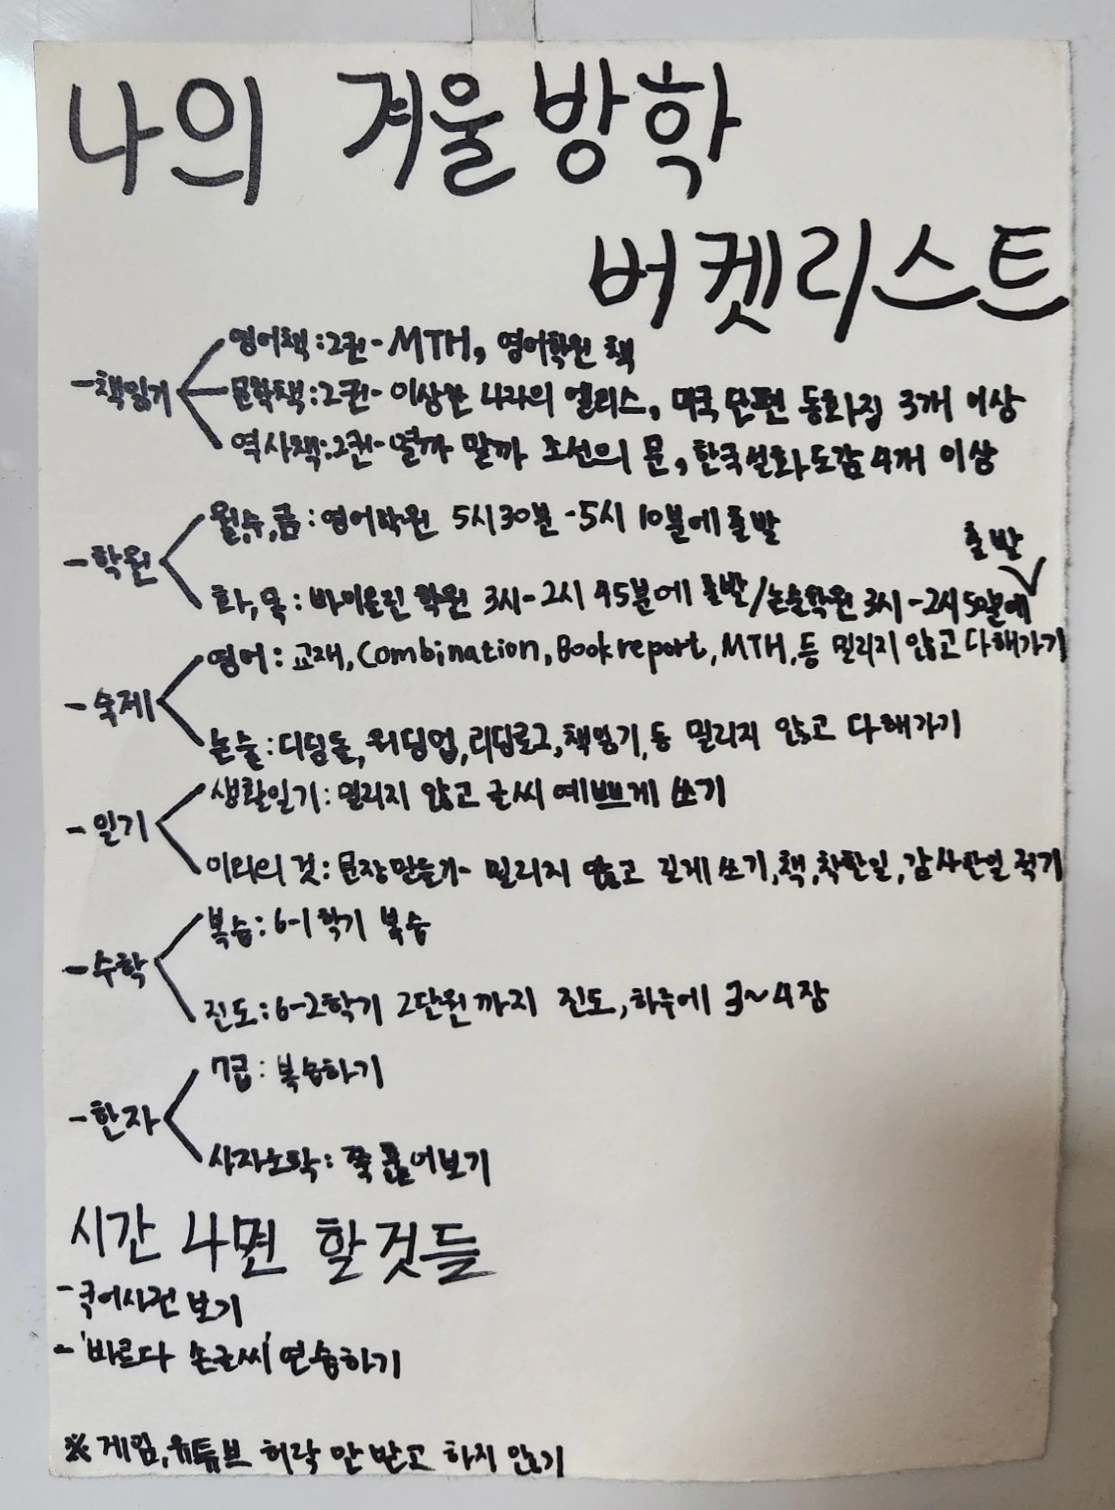 나의 겨울방학
버켓리스트
-책읽기
영어책:2권- MTH, 영어학원 책
문학책:2권- 이상한 나라의 엘리스, 미국 단편 동화집 3개 이상
역사책:2권-열까 말까 조선의 문, 한국설화도감 4개 이상
-학원
월,수,금: 영어학원 5시30분 -5시 10분에 출발
출발
화,목: 바이올린 학원 3시-2시 45분에 출발/논술학원 3시-2시 50분에
-숙제
영어: 교재, Combination, Book report, MTH, 등 밀리지 않고 다해가기
논술:디딤돌, 워딩업, 리딩로그, 책읽기, 등 밀리지 않고 다해가기
-일기
생활일기: 밀리지 않고 글씨 예쁘게 쓰기
이외의 것: 문장만들기- 밀리지 않고 길게 쓰기, 책, 착한일, 감사한일 적기
-수학
복습: 6-1학기 복습
진도: 6-2학기 2단원까지 진도, 하루에 3~4장
-한자
7급: 복습하기
사자소학: 쭉 훑어보기
시간 나면 할것들
-국어사전 보기
-'바르다 손글씨' 연습하기
※ 게임, 유튜브 허락 안 받고 하지 않기